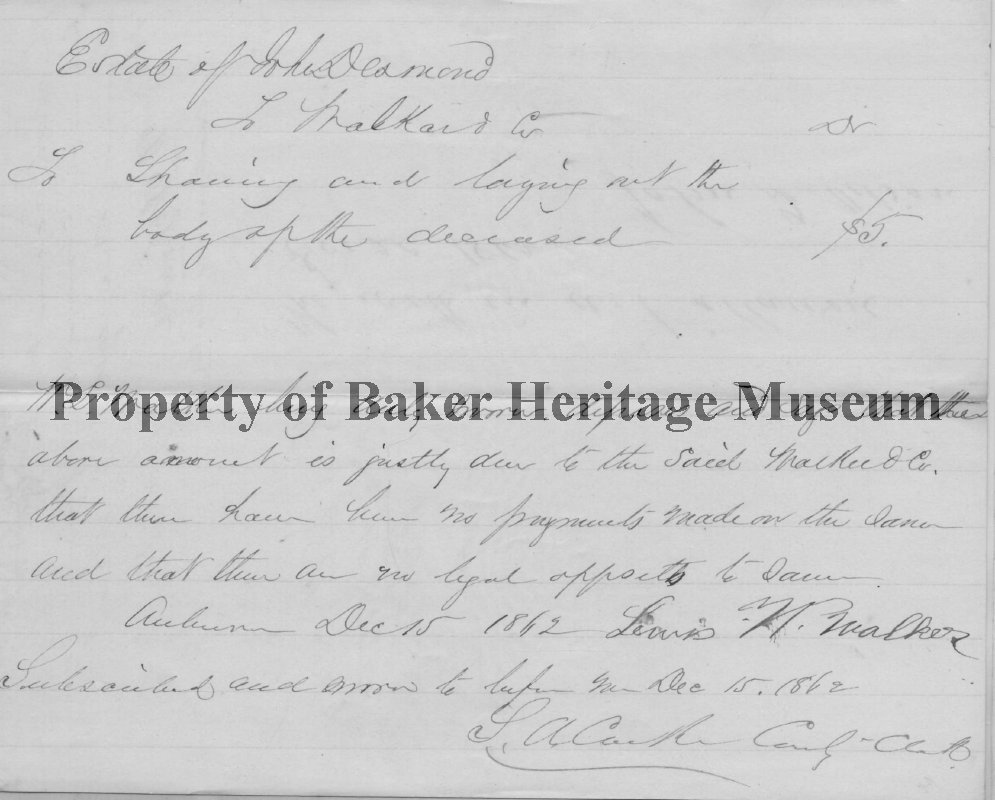 Estate of John Desmond
To Walker & Co Dr
To Shaving and laying out the
body of the deceased $5.
Property of Baker Heritage Museum
being duly sworn deposes and says that the
above amount is justly due to the said Walker & Co.
that there have been no payments made on the same
and that there are no legal offsetts to same.
Auburn Dec 15 1862 Lewis W. Walker
Subscribed and sworn to before me Dec 15. 1862
S. A. Clarke County Clerk